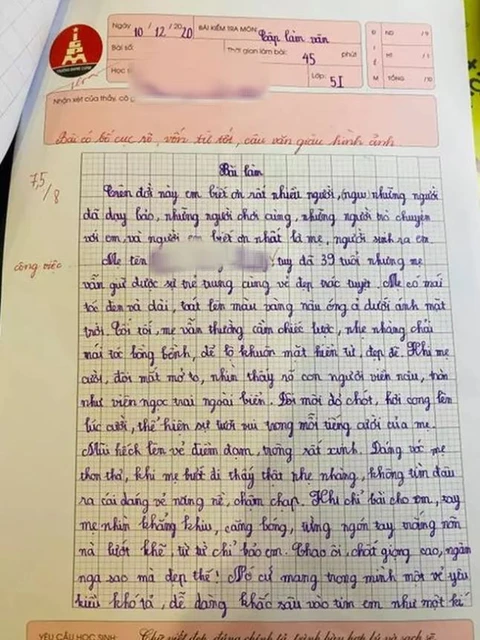 Ngày 10 / 12 / 2020 BÀI KIỂM TRA MÔN: Tập làm văn
Bài số: Thời gian làm bài: 45 phút
Học s Lớp: 5I
ĐIỂM
ND /9
HT /1
TỔNG /10
Nhận xét của thầy, cô g
Bài có bố cục rõ, vốn từ tốt, câu văn giàu hình ảnh
7,5/8
Bài làm
Trên đời này em biết ơn rất nhiều người, những người
đã dạy bảo, những người chơi cùng, những người trò chuyện
với em và người em biết ơn nhất là mẹ, người sinh ra em.
Mẹ tên , tuy đã 39 tuổi nhưng mẹ
công việc
vẫn giữ được sự trẻ trung cùng vẻ đẹp tuyệt. Mẹ có mái
tóc đen và dài, toát lên màu vàng nâu óng ả dưới ánh mặt
trời. Tối tối, mẹ vẫn thường cầm chiếc lược, nhẹ nhàng chải
mái tóc bồng bềnh, để lộ khuôn mặt hiền từ, đẹp đẽ. Khi mẹ
cười, đôi mắt mở to, nhìn thấy rõ con người viền nâu, tròn
như viên ngọc trai ngoài biển. Đôi môi đỏ chót, hơi cong lên
lúc cười, thể hiện sự tươi vui trong mỗi tiếng cười của mẹ.
Mũi hếch lên vẻ điềm đạm, trông rất xinh. Dáng vóc mẹ
thon thả, khi mẹ bước đi thấy thật nhẹ nhàng, không tìm đâu
ra cái dáng vẻ nặng nề, chậm chạp. Khi chỉ bài cho em, tay
mẹ nhìn khẳng khiu, căng bóng, từng ngón tay trắng nõn
nà lướt khẽ, từ từ chỉ bảo em. Chao ôi, chất giọng cao, ngân
nga sao mà đẹp thế! Nó cứ mang trong mình một vẻ yêu
kiều khó tả, dễ dàng khắc sâu vào tim em như một kí
YÊU CẦU HỌC SINH: Chữ viết đẹp, đúng chính tả, trình bày hợp lý và sạch sẽ.